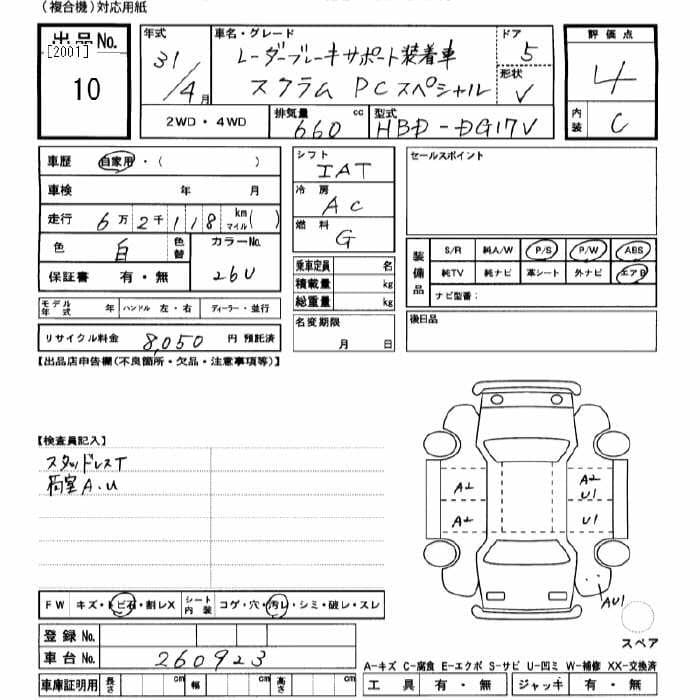 (複合機)対応用紙
出品No.
[2001]
10
年式
31/4月
車名・グレード
レーダーブレーキサポート装着車
スクラム PCスペシャル
ドア
5
形状
V
評価点
4
内装
C
2WD・4WD
排気量
660 cc
型式
HBD-DG17V
車歴 自家用・( )
車検 年 月
走行 6万2千118 km マイル( )
色 白 色替
カラーNo.
26U
保証書 有・無
シフト
IAT
冷房
AC
燃料
G
セールスポイント
装備品
S/R 純A/W P/S P/W ABS
純TV 純ナビ 革シート 外ナビ エアB
ナビ型番:
乗車定員 名
積載量 kg
総重量 kg
モデル年式 年 ハンドル 左・右 ディーラー・並行
リサイクル料金 8,050 円 預託済
名変期限
月 日
後日品
【出品店申告欄(不良箇所・欠品・注意事項等)】
【検査員記入】
スタッドレスT
荷室A.U
A2
A2
A2
U1
U1
AU1
スペア
FW キズ・トビ石・割レX シート内装 コゲ・穴・汚レ・シミ・破レ・スレ
登録No.
車台No. 260923
車庫証明用 長さ cm 幅 cm 高さ cm
A-キズ C-腐食 E-エクボ S-サビ U-凹ミ W-補修 XX-交換済
工具 有・無 ジャッキ 有・無